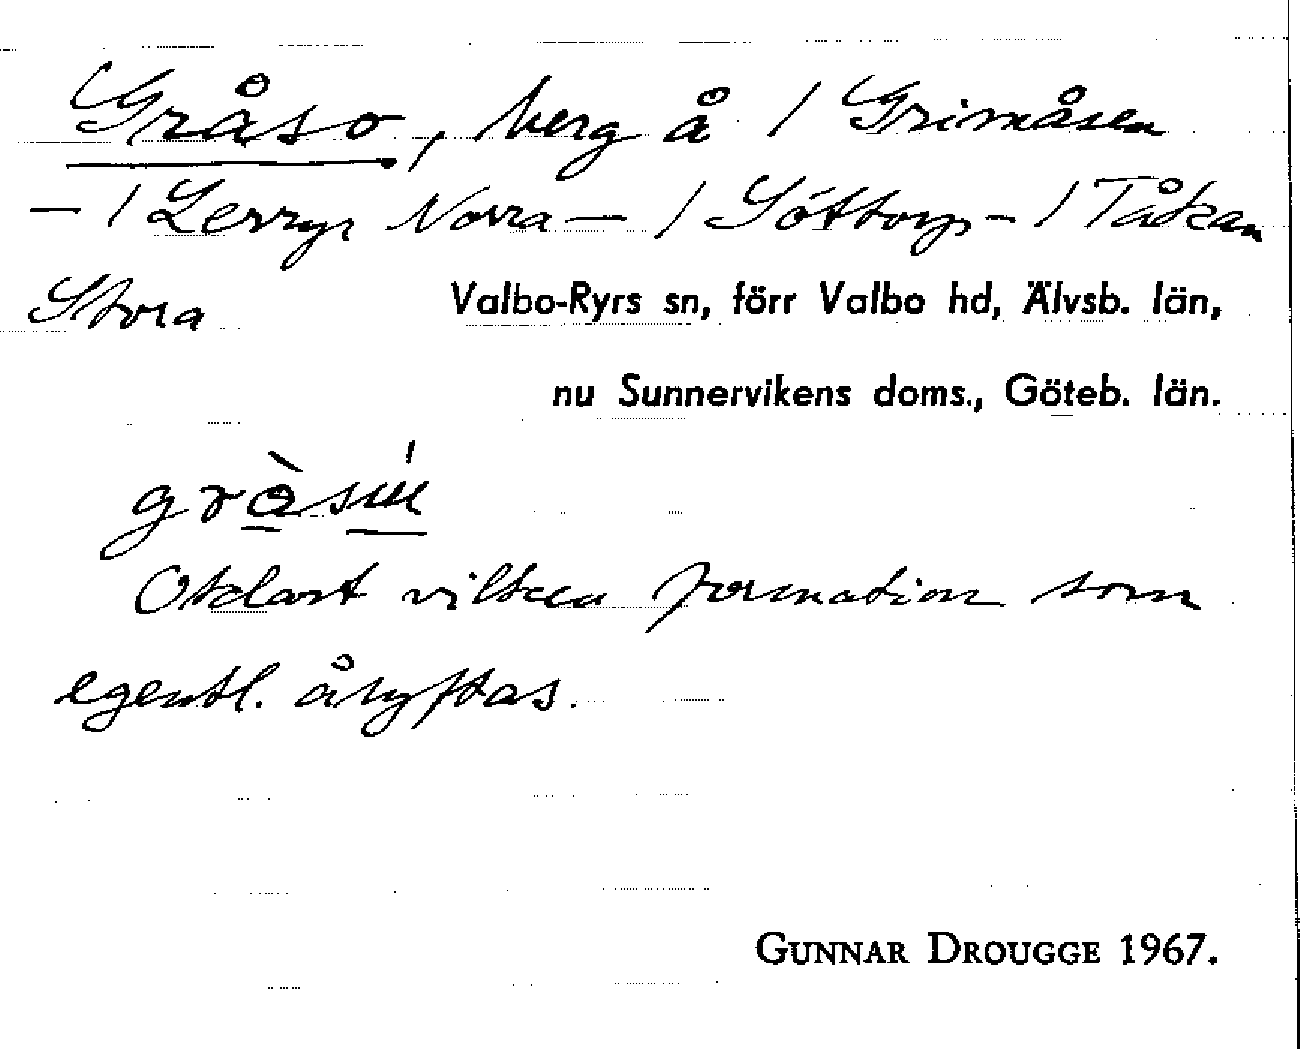 Gråso, berg å / Grimåsen
– / Lerryr Norra – / Söttorp – / Tåkan
Stora
Valbo-Ryrs sn, förr Valbo hd, Älvsb. län,
nu Sunnervikens doms., Göteb. län.
Oklart vilken formation som
egentl. åsyftas.
GUNNAR DROUGGE 1967.